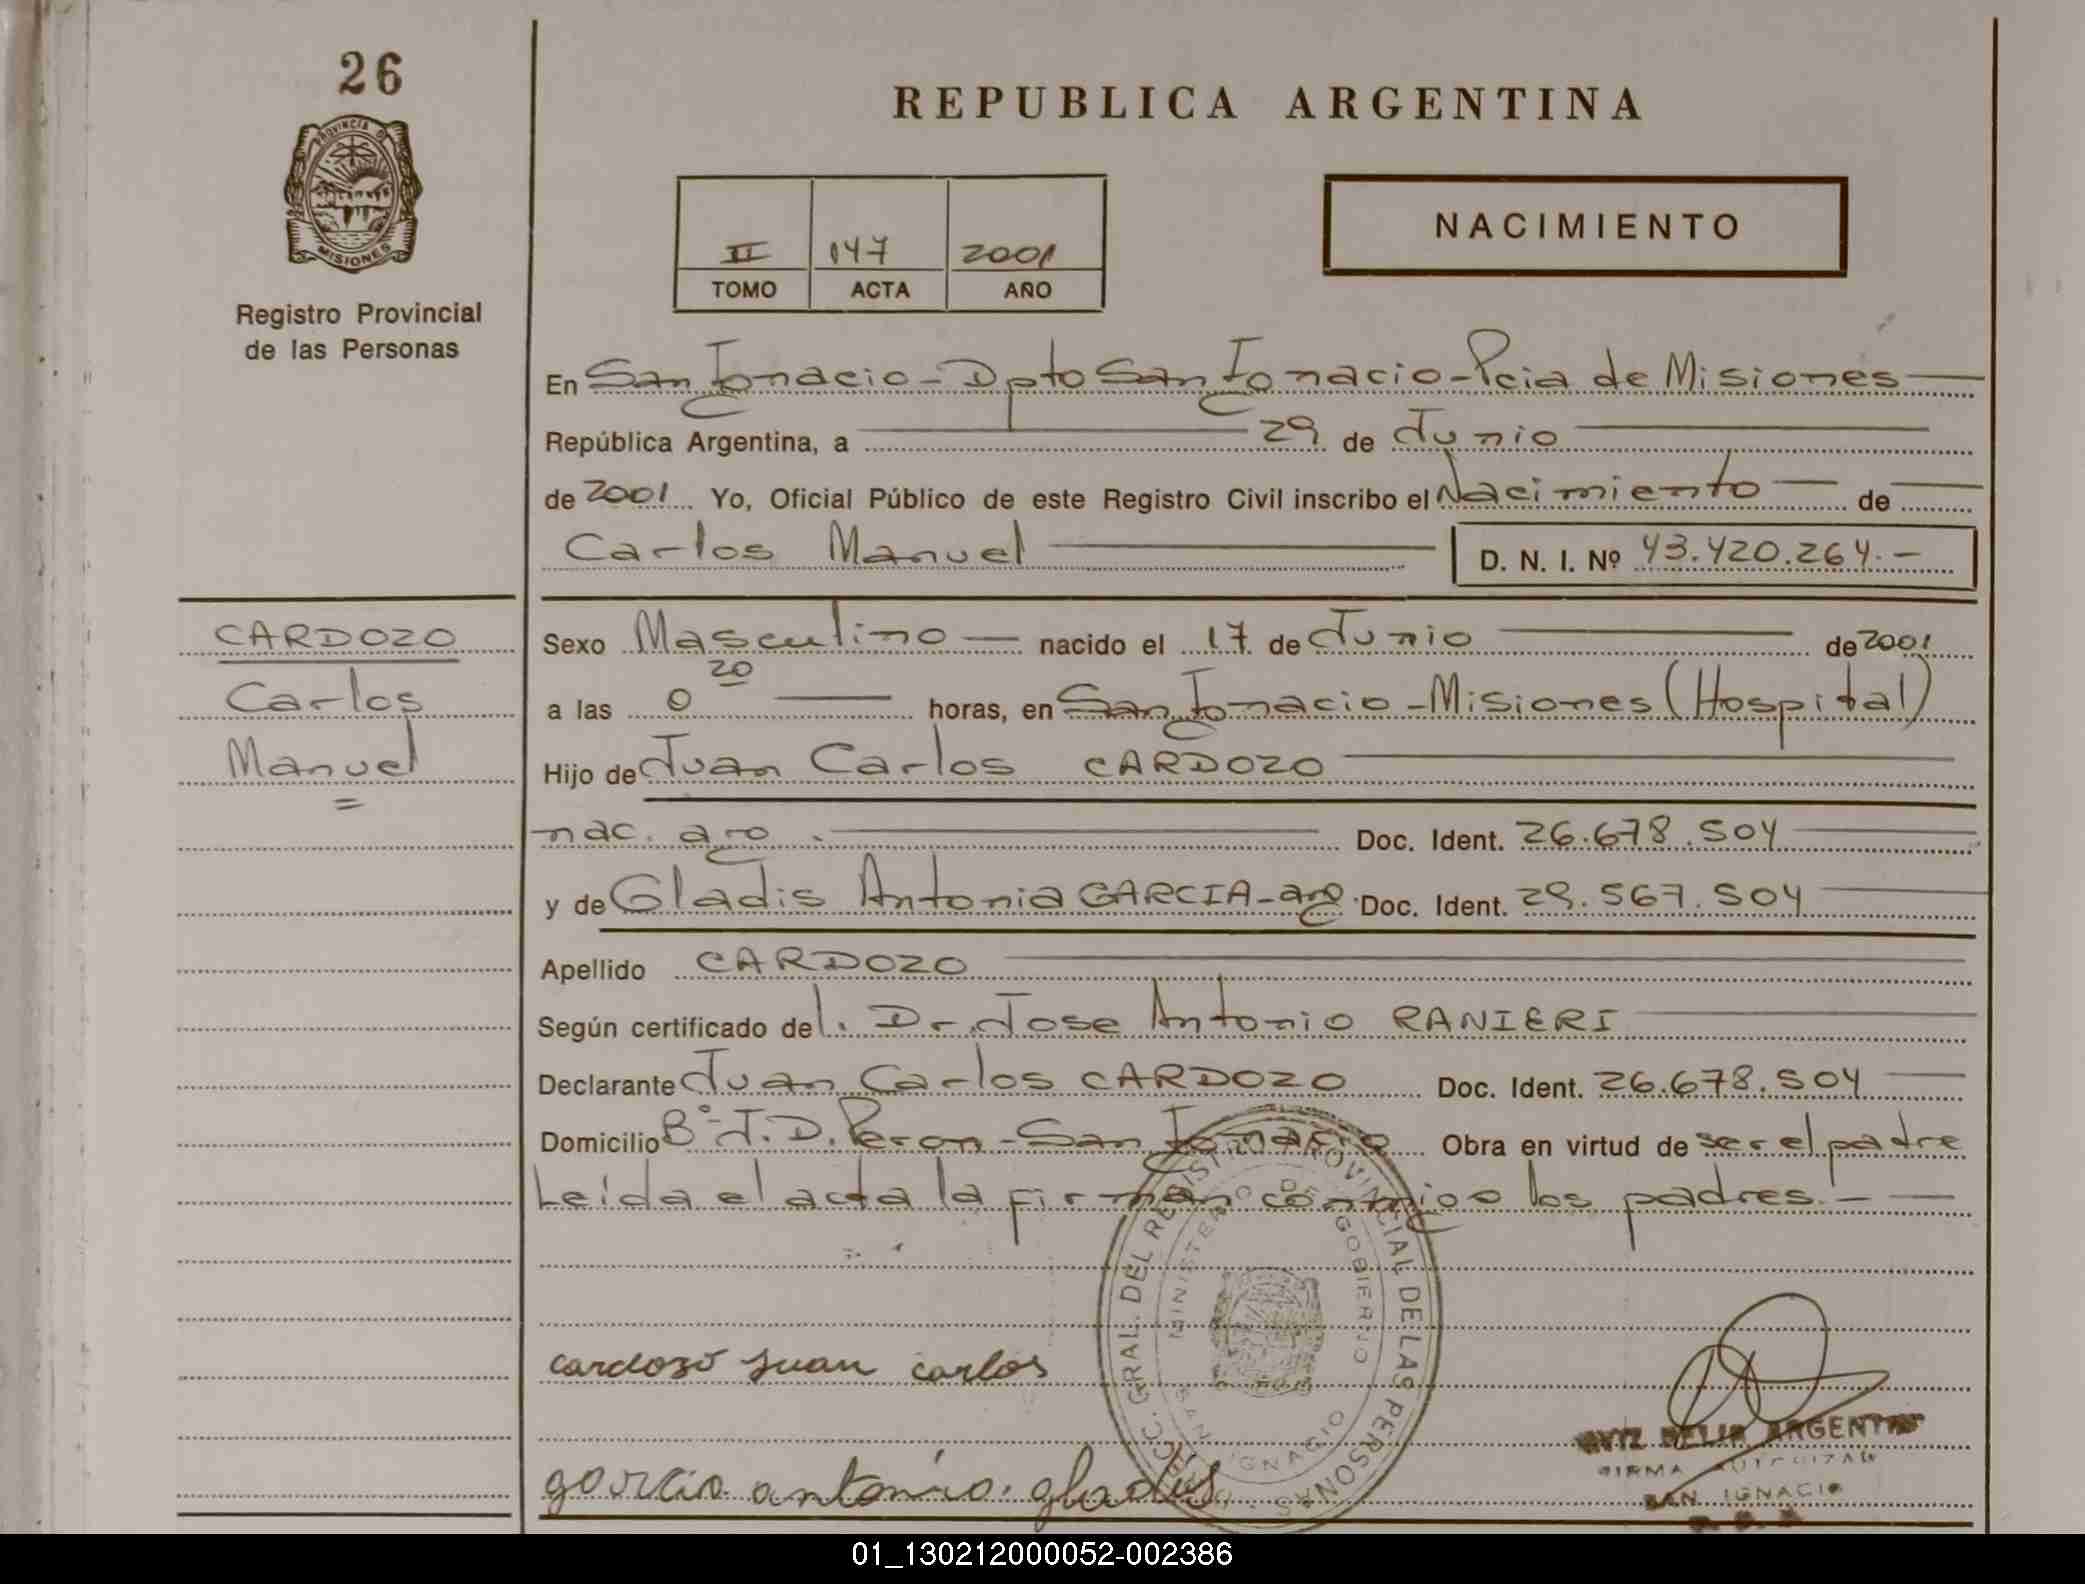 26
PROVINCIA D
MISIONES
Registro Provincial
de las Personas
REPUBLICA ARGENTINA
II 147 2001
TOMO ACTA AÑO
NACIMIENTO
En San Ignacio - Dpto San Ignacio - Pcia de Misiones
República Argentina, a 29 de Junio
de 2001 Yo, Oficial Público de este Registro Civil inscribo el Nacimiento de
Carlos Manuel D. N. I. Nº 43.420.264.-
CARDOZO
Carlos
Manuel
=
Sexo Masculino nacido el 17 de Junio de 2001
a las 0 20 horas, en San Ignacio - Misiones (Hospital)
Hijo de Juan Carlos CARDOZO
nac. arg. Doc. Ident. 26.678.504
y de Gladis Antonia GARCIA - arg. Doc. Ident. 29.567.504
Apellido CARDOZO
Según certificado del. Dr. Jose Antonio RANIERI
Declarante Juan Carlos CARDOZO Doc. Ident. 26.678.504
Domicilio Bº J.D. Peron - San Ignacio Obra en virtud de ser el padre
Leída el acta la firman conmigo los padres.-
GRAL. DEL REGISTRO PROVINCIAL DE LAS PERSONAS
MINISTERIO DE GOBIERNO
SAN IGNACIO
cardozo juan carlos
garcia antonia. gladis
DELIA ARGENTI
FIRMA
SAN IGNACIO
01_130212000052-002386